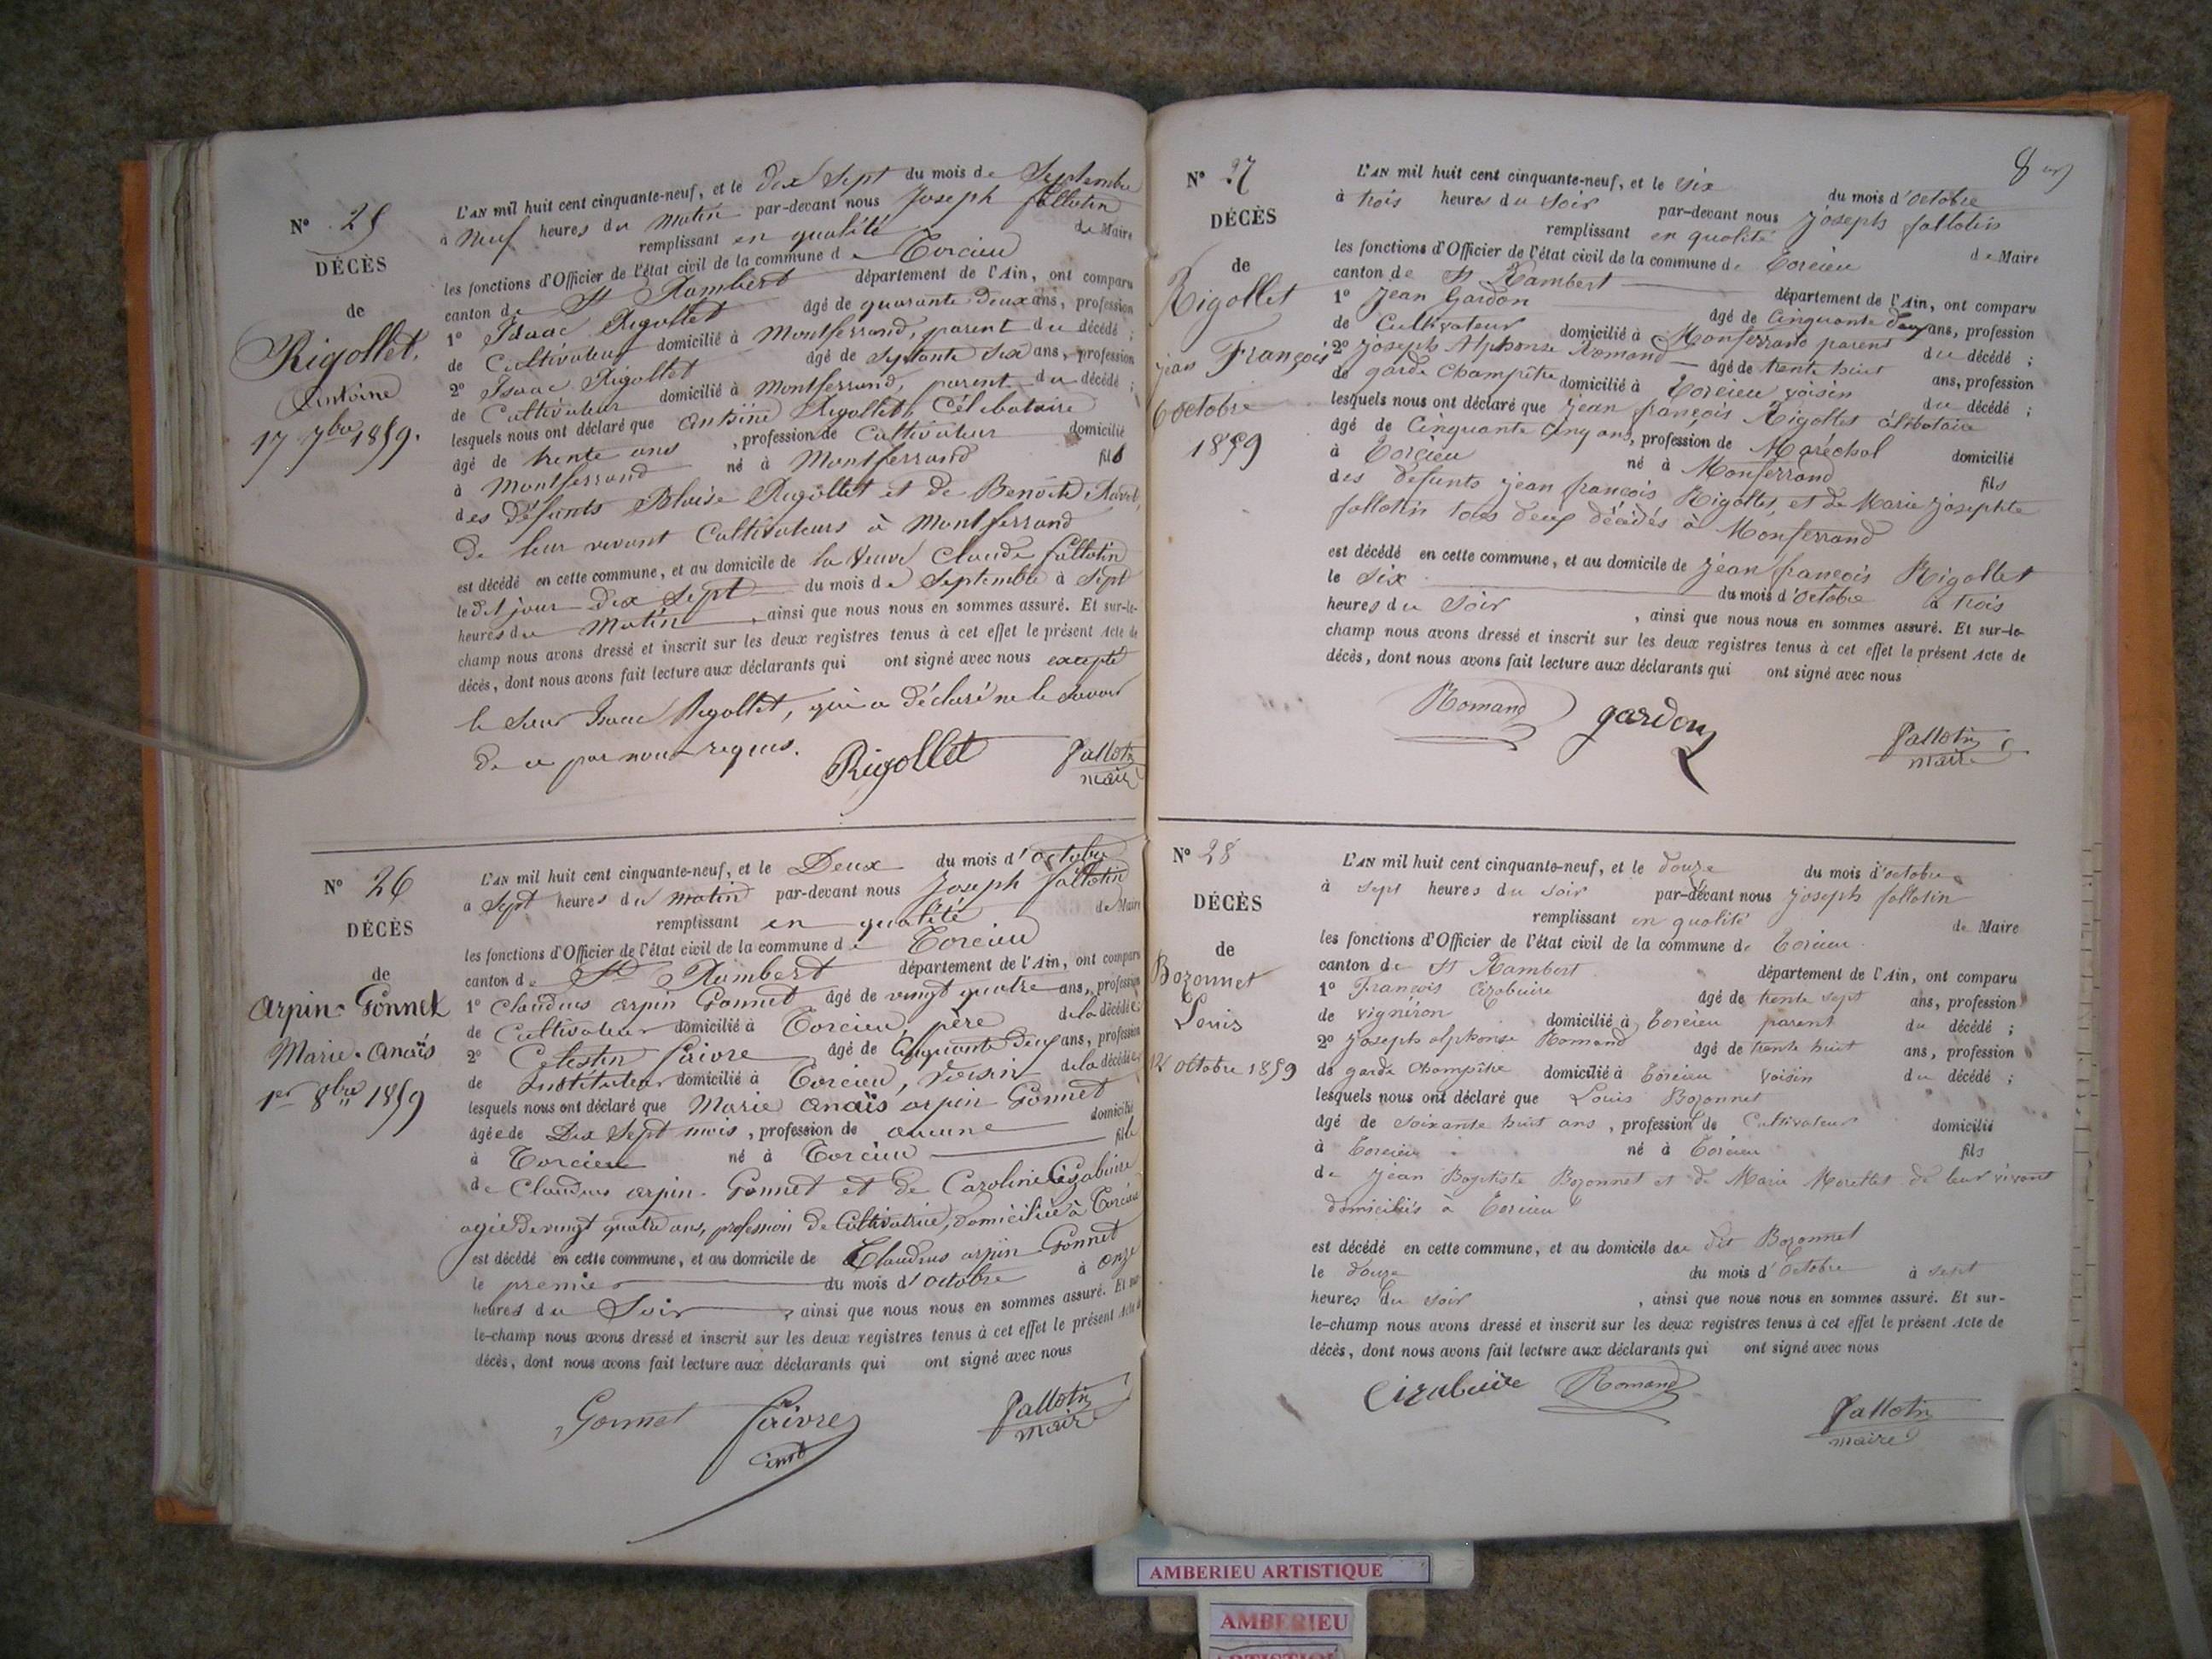 N° 25
DÉCÈS
de
Rigollet
Antoine
17 7bre 1859.
L'AN mil huit cent cinquante-neuf, et le dix Sept du mois de Septembre
à neuf heures du matin par-devant nous Joseph fallotin
remplissant en qualité de Maire
les fonctions d'Officier de l'état civil de la commune de Torcieu
canton de St Rambert département de l'Ain, ont comparu
1° Isaac Rigollet âgé de quarante deux ans, profession
de Cultivateur domicilié à Montferrand, parent du décédé ;
2° Isaac Rigollet âgé de Septante Six ans, profession
de Cultivateur domicilié à Montferrand, parent du décédé ;
lesquels nous ont déclaré que Antoine Rigollet, Célibataire
âgé de trente ans , profession de Cultivateur domicilié
à Montferrand né à Montferrand fils
des défunts Blaise Rigollet et de Benoite Ravet,
de leur vivant Cultivateurs à Montferrand
est décédé en cette commune, et au domicile de la Veuve Claude fallotin
le dit jour dix Sept du mois de Septembre à Sept
heures du matin , ainsi que nous nous en sommes assuré. Et sur-le-
champ nous avons dressé et inscrit sur les deux registres tenus à cet effet le présent Acte de
décès, dont nous avons fait lecture aux déclarants qui ont signé avec nous excepté
le Sieur Isaac Rigollet, qui a déclaré ne le Savoir
de ce par nous requis.
Rigollet
fallotin
maire
N° 26
DÉCÈS
de
Arpin-Gonnet
Marie-Anaïs
1er 8bre 1859
L'AN mil huit cent cinquante-neuf, et le Deux du mois d'octobre
à Sept heures du matin par-devant nous Joseph fallotin
remplissant en qualité de Maire
les fonctions d'Officier de l'état civil de la commune de Torcieu
canton de St Rambert département de l'Ain, ont comparu
1° Claudius arpin Gonnet âgé de vingt quatre ans, profession
de Cultivateur domicilié à Torcieu, père de la décédée ;
2° Celestin faivre âgé de Cinquante Deux ans, profession
de Instituteur domicilié à Torcieu, voisin de la décédée
lesquels nous ont déclaré que Marie anaïs arpin Gonnet
âgée de Dix Sept mois , profession de aucune domicilié
à Torcieu né à Torcieu fille
de Claudius arpin-Gonnet et de Caroline
agée de vingt quatre ans, profession de Cultivatrice, domiciliée à Torcieu
est décédé en cette commune, et au domicile de Claudius arpin Gonnet
le premier du mois d'octobre à onze
heures du Soir , ainsi que nous nous en sommes assuré. Et sur
le-champ nous avons dressé et inscrit sur les deux registres tenus à cet effet le présent Acte de
décès, dont nous avons fait lecture aux déclarants qui ont signé avec nous
Gonnet faivre
inst
fallotin
maire
8
N° 27
DÉCÈS
de
Rigollet
jean François
6 octobre
1859
L'AN mil huit cent cinquante-neuf, et le six du mois d'octobre
à trois heures du soir par-devant nous joseph fallotin
remplissant en qualité de Maire
les fonctions d'Officier de l'état civil de la commune de Torcieu
canton de St Rambert département de l'Ain, ont comparu
1° jean Gardon âgé de Cinquante deux ans, profession
de Cultivateur domicilié à Monferrand parent du décédé ;
2° joseph Alphonse Romand âgé de trente huit ans, profession
de garde Champêtre domicilié à Torcieu voisin du décédé ;
lesquels nous ont déclaré que jean françois Rigollet célibataire
âgé de Cinquante Cinq ans, profession de Maréchal domicilié
à Torcieu né à Monferrand fils
des défunts jean françois Rigollet, et de Marie josephte
fallotin tous deux décédés à Monferrand
est décédé en cette commune, et au domicile de jean françois Rigollet
le six du mois d'octobre à trois
heures du soir , ainsi que nous nous en sommes assuré. Et sur-le-
champ nous avons dressé et inscrit sur les deux registres tenus à cet effet le présent Acte de
décès, dont nous avons fait lecture aux déclarants qui ont signé avec nous
Romand gardon
fallotin
maire
N° 28
DÉCÈS
de
Bozonnet
Louis
12 octobre 1859
L'AN mil huit cent cinquante-neuf, et le douze du mois d'octobre
à sept heures du soir par-devant nous joseph fallotin
remplissant en qualité de Maire
les fonctions d'Officier de l'état civil de la commune de Torcieu
canton de St Rambert département de l'Ain, ont comparu
1° François Cizabuire âgé de trente sept ans, profession
de vigneron domicilié à Torcieu parent du décédé ;
2° joseph alphonse Romand âgé de trente huit ans, profession
de garde Champêtre domicilié à Torcieu voisin du décédé ;
lesquels nous ont déclaré que Louis Bozonnet
âgé de soixante huit ans , profession de Cultivateur domicilié
à Torcieu né à Torcieu fils
de jean Baptiste Bozonnet et de Marie Morellet de leur vivant
domiciliés à Torcieu
est décédé en cette commune, et au domicile du dit Bozonnet
le douze du mois d'octobre à sept
heures du soir , ainsi que nous nous en sommes assuré. Et sur-
le-champ nous avons dressé et inscrit sur les deux registres tenus à cet effet le présent Acte de
décès, dont nous avons fait lecture aux déclarants qui ont signé avec nous
Cizabuire Romand
fallotin
maire
AMBERIEU ARTISTIQUE
AMBERIEU
ARTISTIQUE